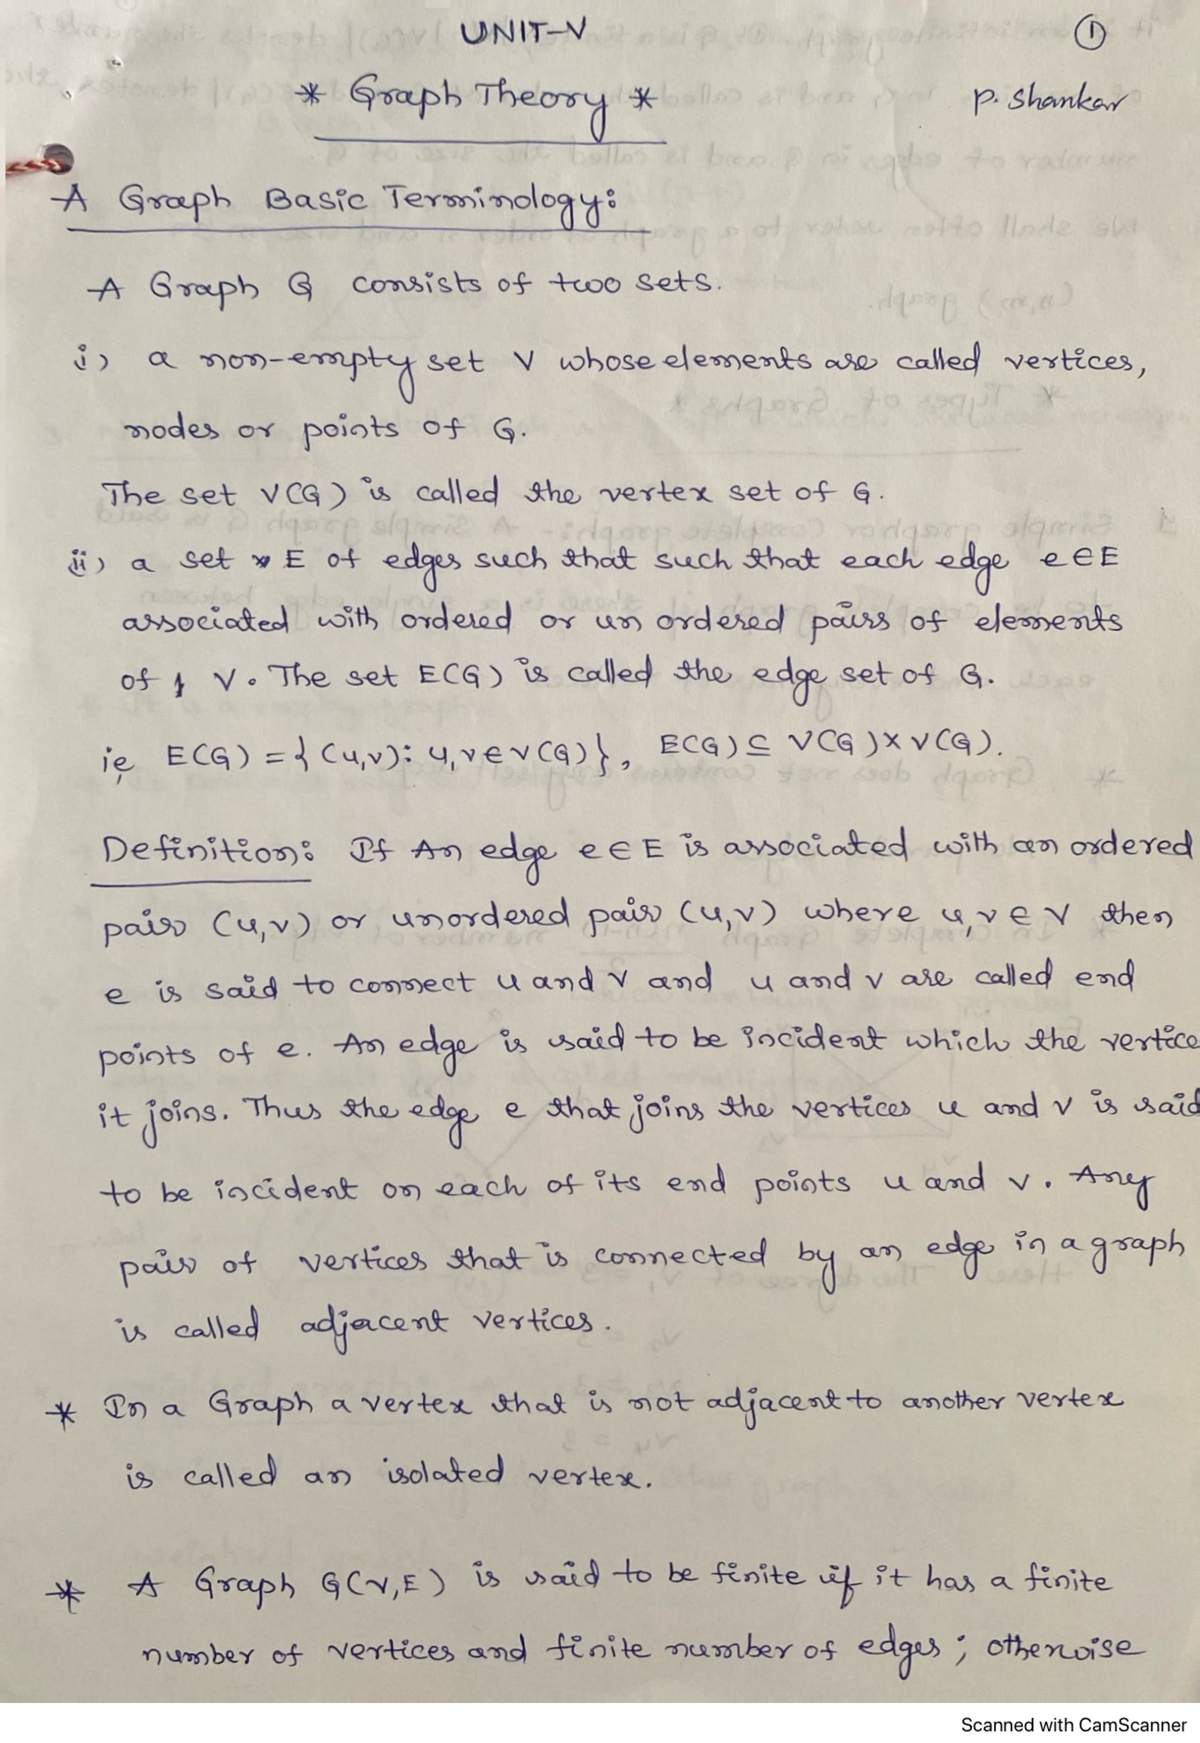 UNIT-V
①
* Graph Theory *
P. Shankar
A Graph Basic Terminology:
A Graph G consists of two sets.
i) a non-empty set V whose elements are called vertices,
nodes or points of G.
The set V(G) is called the vertex set of G.
ii) a set E of edges such that such that each edge e∈E
associated with ordered or un ordered pairs of elements
of V. The set E(G) is called the edge set of G.
ie E(G) = { (u,v): u,v∈V(G)}, E(G) ⊆ V(G)×V(G).
Definition: If An edge e∈E is associated with an ordered
pair (u,v) or unordered pair (u,v) where u,v∈V then
e is said to connect u and v and u and v are called end
points of e. An edge is said to be incident which the vertice
it joins. Thus the edge e that joins the vertices u and v is said
to be incident on each of its end points u and v. Any
pair of vertices that is connected by an edge in a graph
is called adjacent vertices.
* In a Graph a vertex that is not adjacent to another vertex
is called an isolated vertex.
* A Graph G(V,E) is said to be finite if it has a finite
number of vertices and finite number of edges; otherwise
Scanned with CamScanner